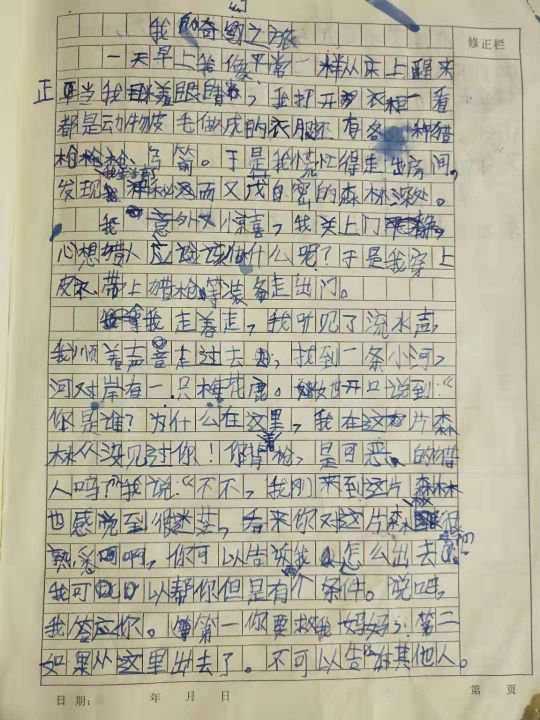 修正栏
我的奇幻之旅
一天早上我像平常一样从床上醒来
正当我揉着眼睛,我打开衣柜一看
都是动物皮毛做成的衣服还有各种猎
枪、弓箭。于是我慌忙得走出房间,
发现我在神秘而又茂密的森林深处。
我意外又惊喜,我关上门
心想猎人应该做什么呢?于是我穿上
皮衣带上猎枪等装备走出门。
我走着走,我听见了流水声,
我顺着声音走过去,找到一条小河,
河对岸有一只梅花鹿。她开口说到:“
你是谁?为什么在这里,我在这片森
林从没见过你!你背着枪,是可恶的猎
人吗?”我说:“不不,我刚来到这片森林
也感觉到很迷茫,看来你对这片森林很
熟悉啊,你可以告诉我怎么出去吗?
我可以帮你但是有个条件。说吧,
我答应你。第一你要救我妈妈;第二
如果从这里出去了。不可以告诉其他人。
日期: 年 月 日 第 页